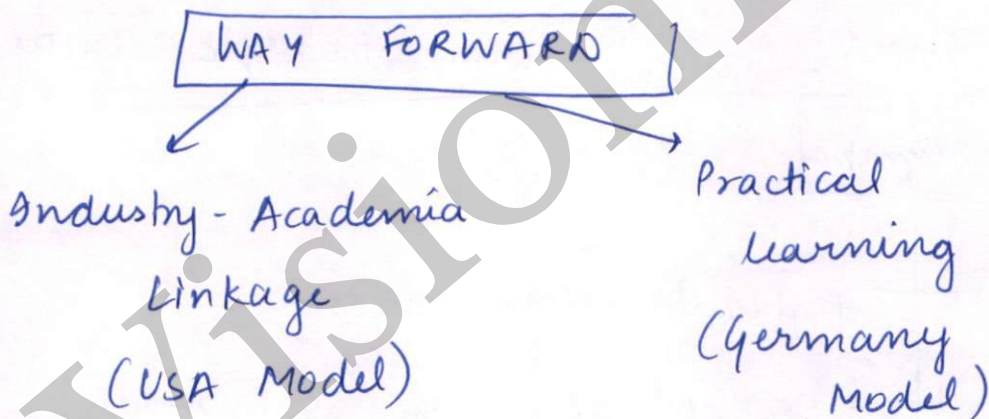 WAY FORWARD
Industry - Academia
Linkage
(USA Model)
Practical
learning
(Germany
Model)
Vision